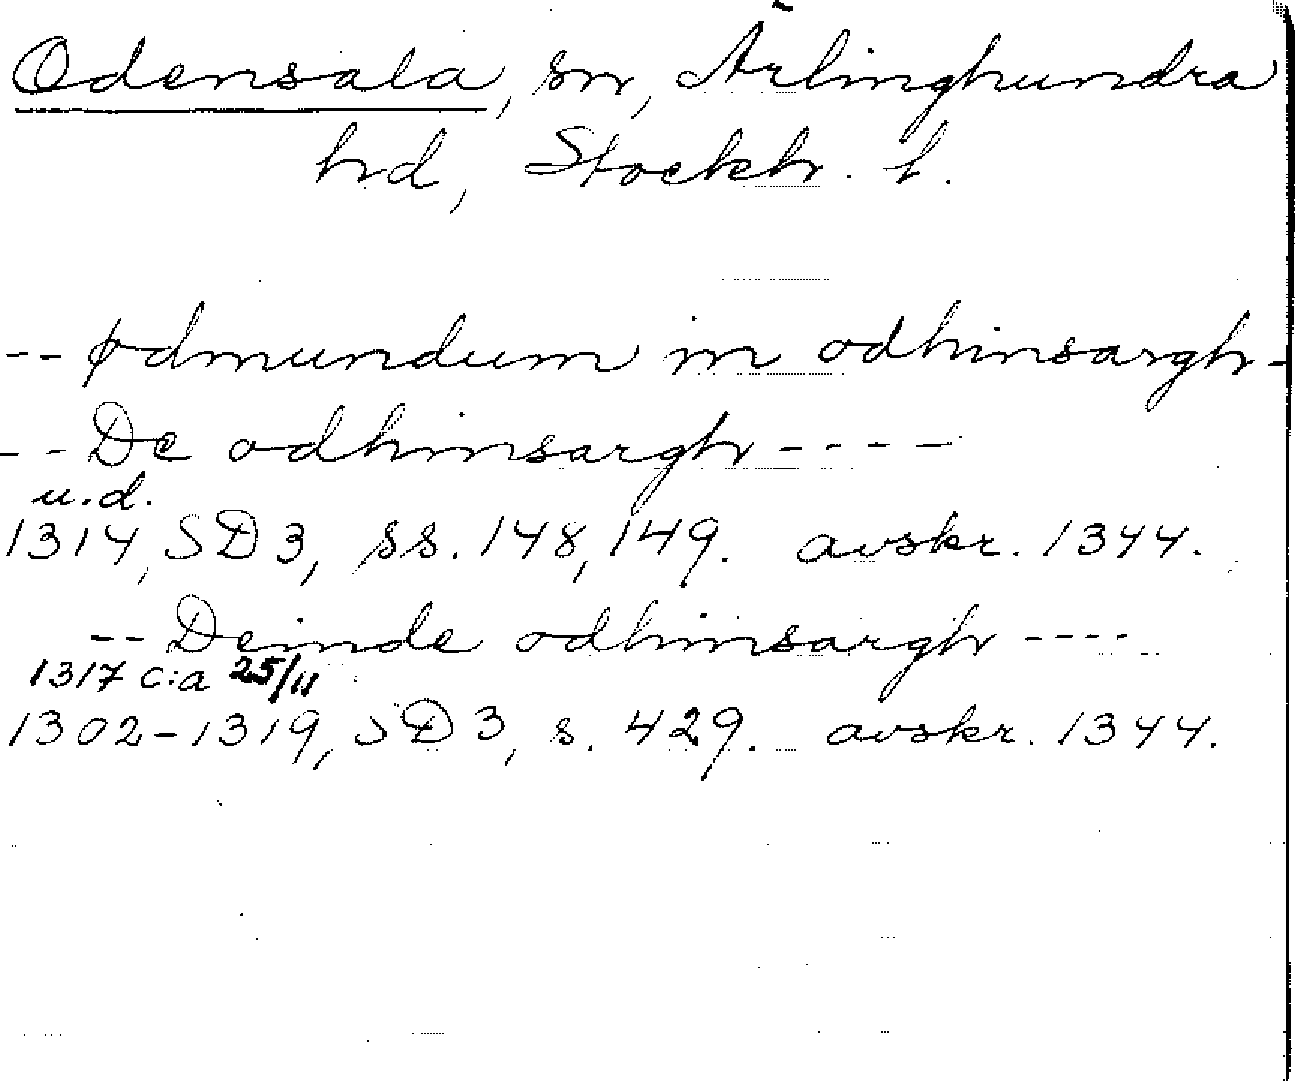 Odensala, sn, Ärlinghundra
hd, Stockh. l.
-- ødmundum in odhinsargh-
-- De odhinsargh ----
u.d.
1314, SD 3, ss. 148, 149. avskr. 1344.
-- Deinde odhinsargh ----
1317 c:a 25/11
1302-1319, SD 3, s. 429. avskr. 1344.